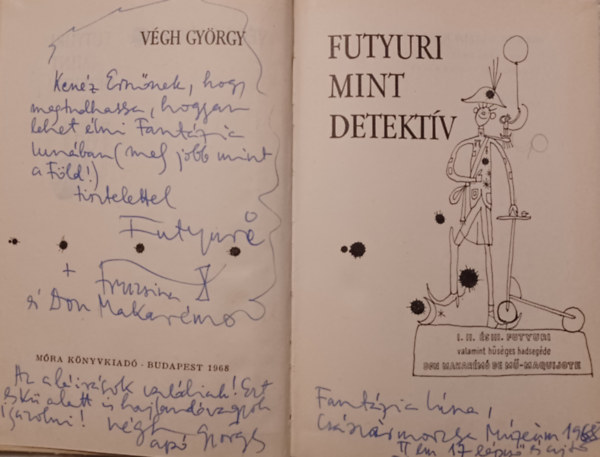 VÉGH GYÖRGY
Kenéz Ernőnek, hogy
megtudhassa, hogyan
lehet élni Fantázia
lunában (mely jobb mint
a Föld!)
tisztelettel
Futyuri
+ Fruzsina
és Don Makarémo
MÓRA KÖNYVKIADÓ · BUDAPEST 1968
Az aláírások valódiak! Ezt
eskü alatt is hajlandó vagyok
igazolni! Végh
apó György
FUTYURI
MINT
DETEKTÍV
I. II. ÉS III. FUTYURI
valamint hűséges hadsegéde
DON MAKARÉMÓ DE MŰ-MAQUIJOTE
Fantázia luna,
Múzeum 1968
II em 17 lépcső